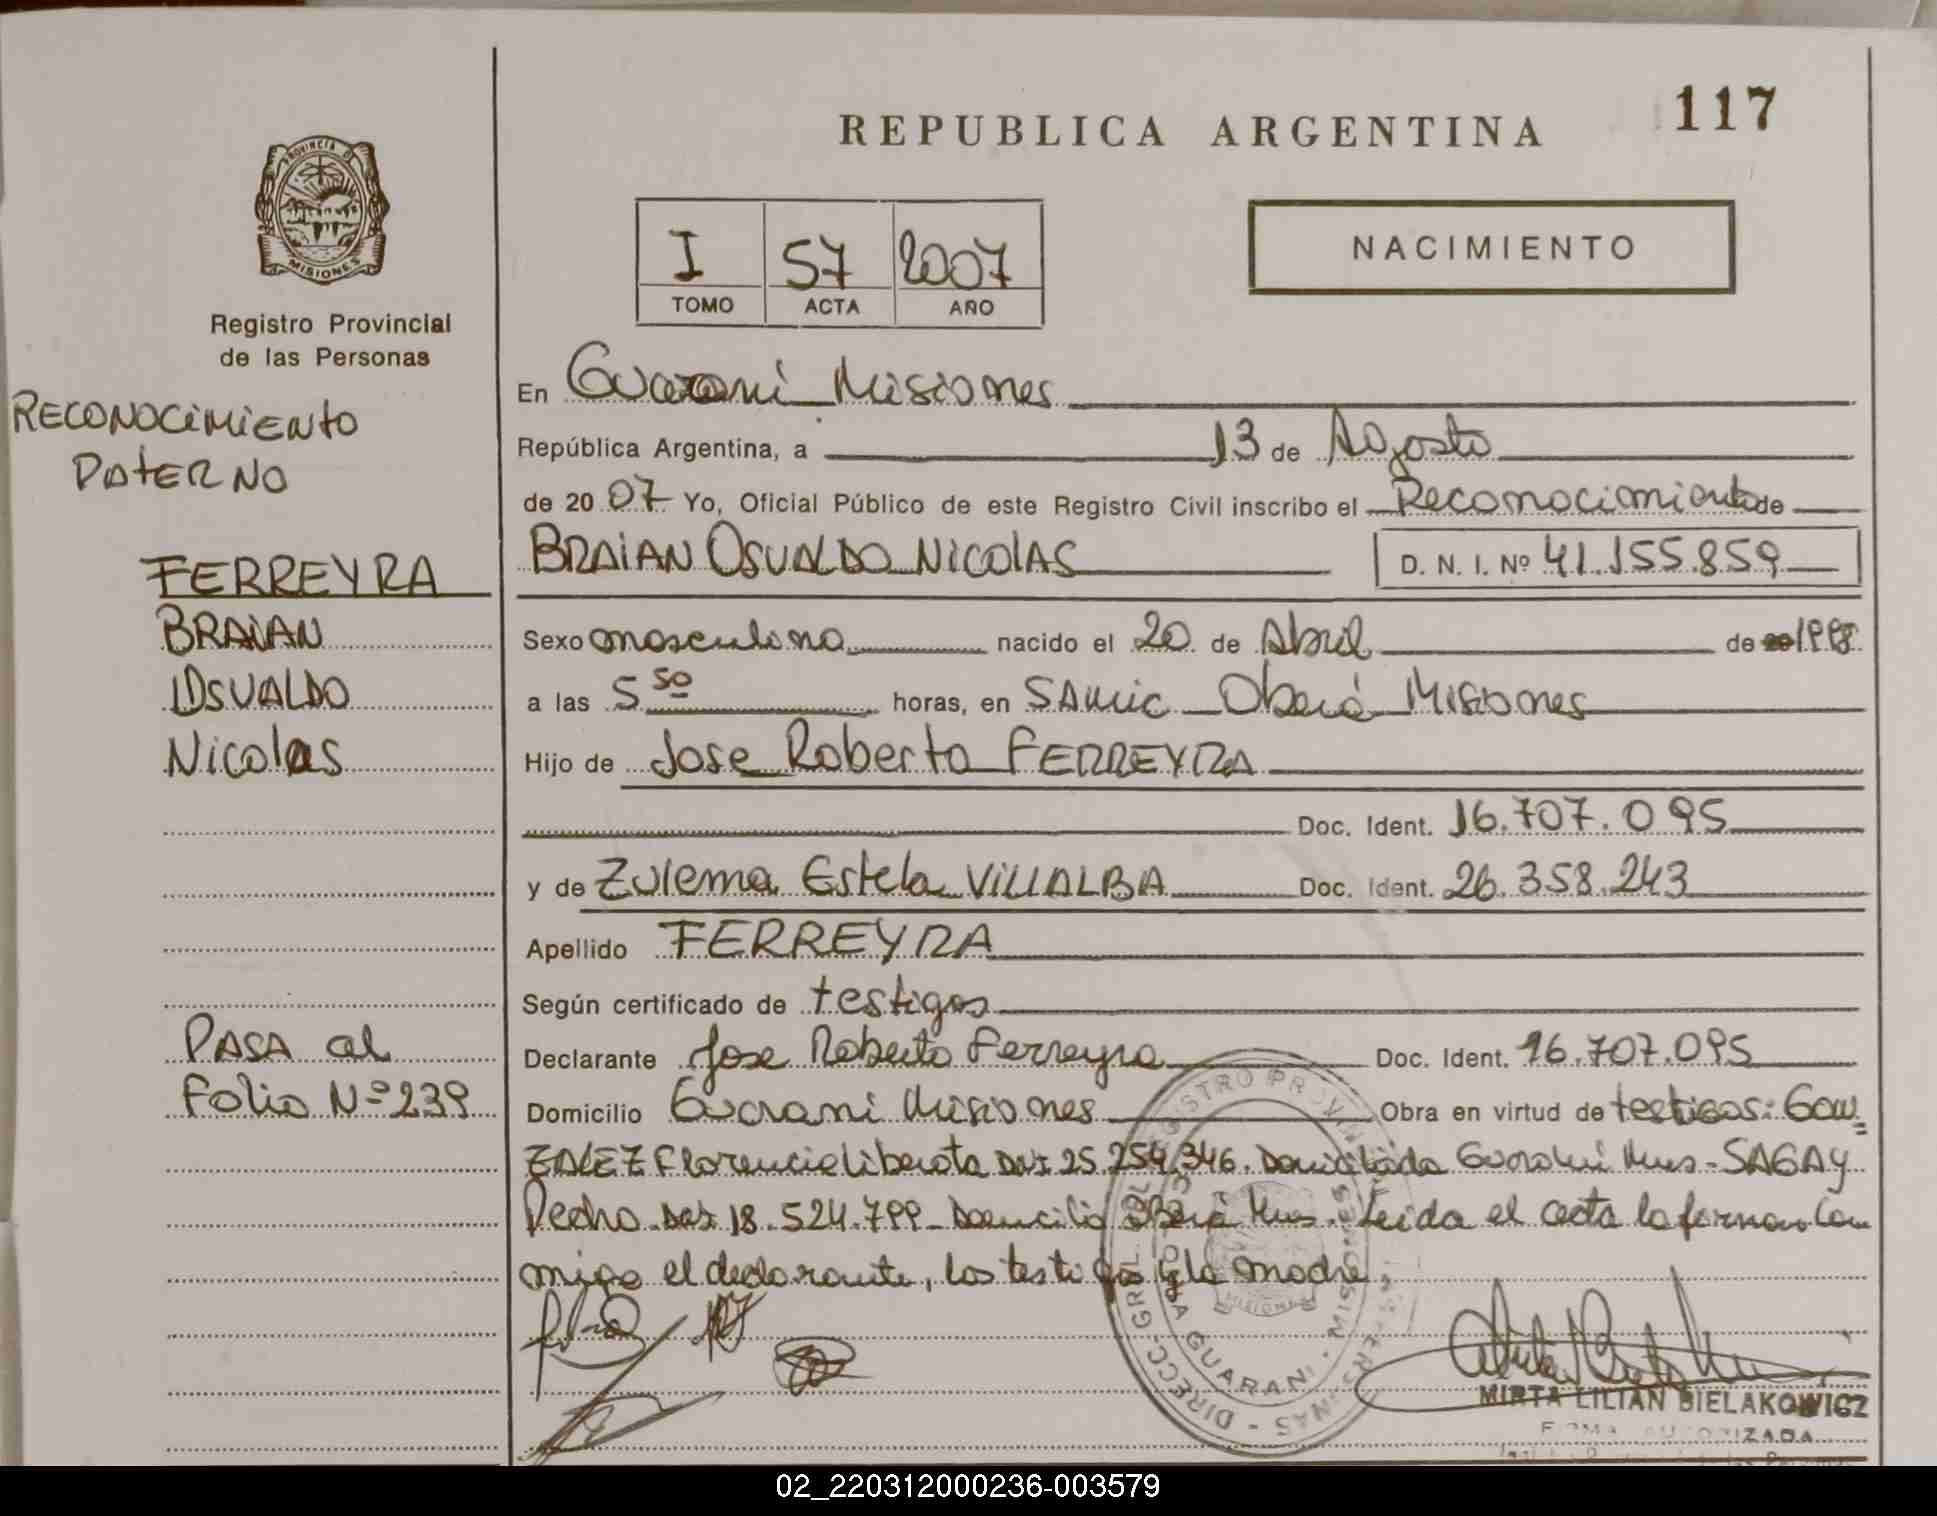 117
REPUBLICA ARGENTINA
PROVINCIA D
MISIONES
Registro Provincial
de las Personas
NACIMIENTO
I 57 2007
TOMO ACTA AÑO
RECONOCIMIENTO
PATERNO
FERREYRA
BRAIAN
OSVALDO
Nicolas
PASA al
Folio Nº 239
En Guarani Misiones
República Argentina, a 13 de Agosto
de 20 07 Yo, Oficial Público de este Registro Civil inscribo el Reconocimiento de
BRAIAN OSVALDO NICOLAS D. N. I. Nº 41.155.859
Sexo masculino nacido el 20 de Abril de 1998
a las 5 50 horas, en SAMIC Oberá Misiones
Hijo de Jose Roberto FERREYRA
Doc. Ident. 16.707.095
y de Zulema Estela VILLALBA Doc. Ident. 26.358.243
Apellido FERREYRA
Según certificado de testigos
Declarante Jose Roberto Ferreyra Doc. Ident. 16.707.095
Domicilio Guarani Misiones Obra en virtud de testigos: Gon=
ZALEZ Florencia Liberata DNI 25.254.346. Domiciliada Guarani Mnes - SAGAY
Pedro DNI 18.524.799 Domicilio Oberá Mnes. Leida el acta la forman con
migo el declarante, los testigos y la madre.
DIRECC. GRL. DEL REGISTRO PROVINCIAL PERSONAS
GUARANI - MISIONES
MISIONES
MIRTA LILIAN BIELAKOWICZ
FIRMA AUTORIZADA
02_220312000236-003579